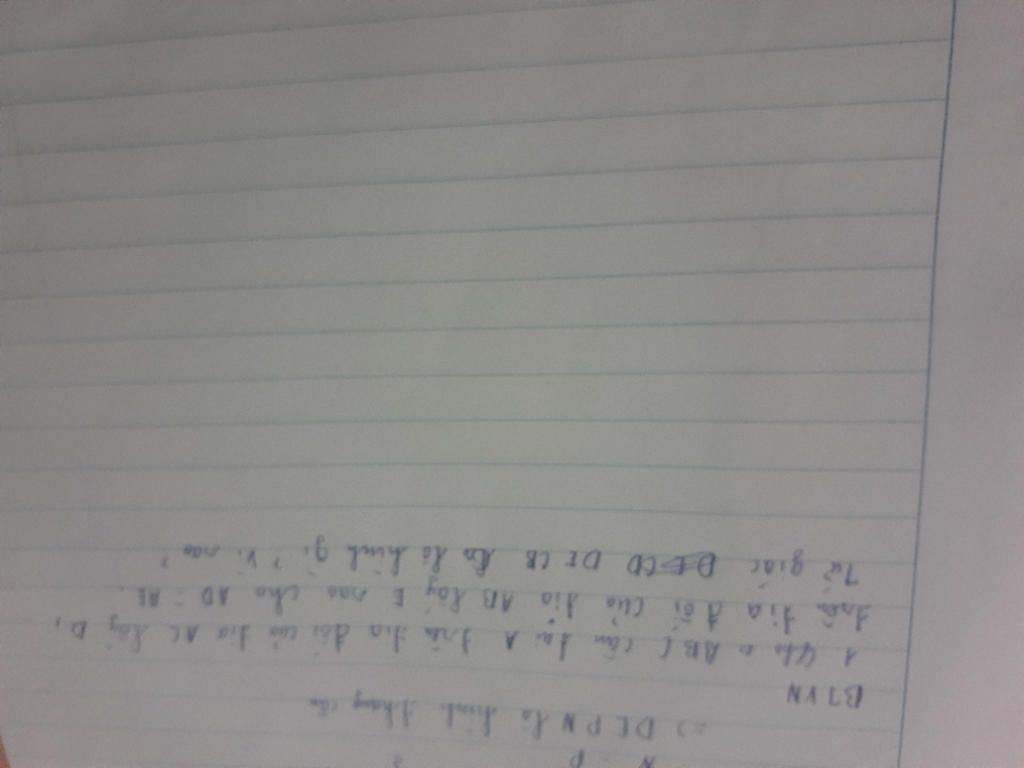 N P 2
=> DEPN là hình thang cân
BTVN
1 Cho △ ABC cân tại A trên tia đối của tia AC lấy D,
trên tia đối của tia AB lấy E sao cho AD = AE.
Tứ giác DECB là hình gì? Vì sao?